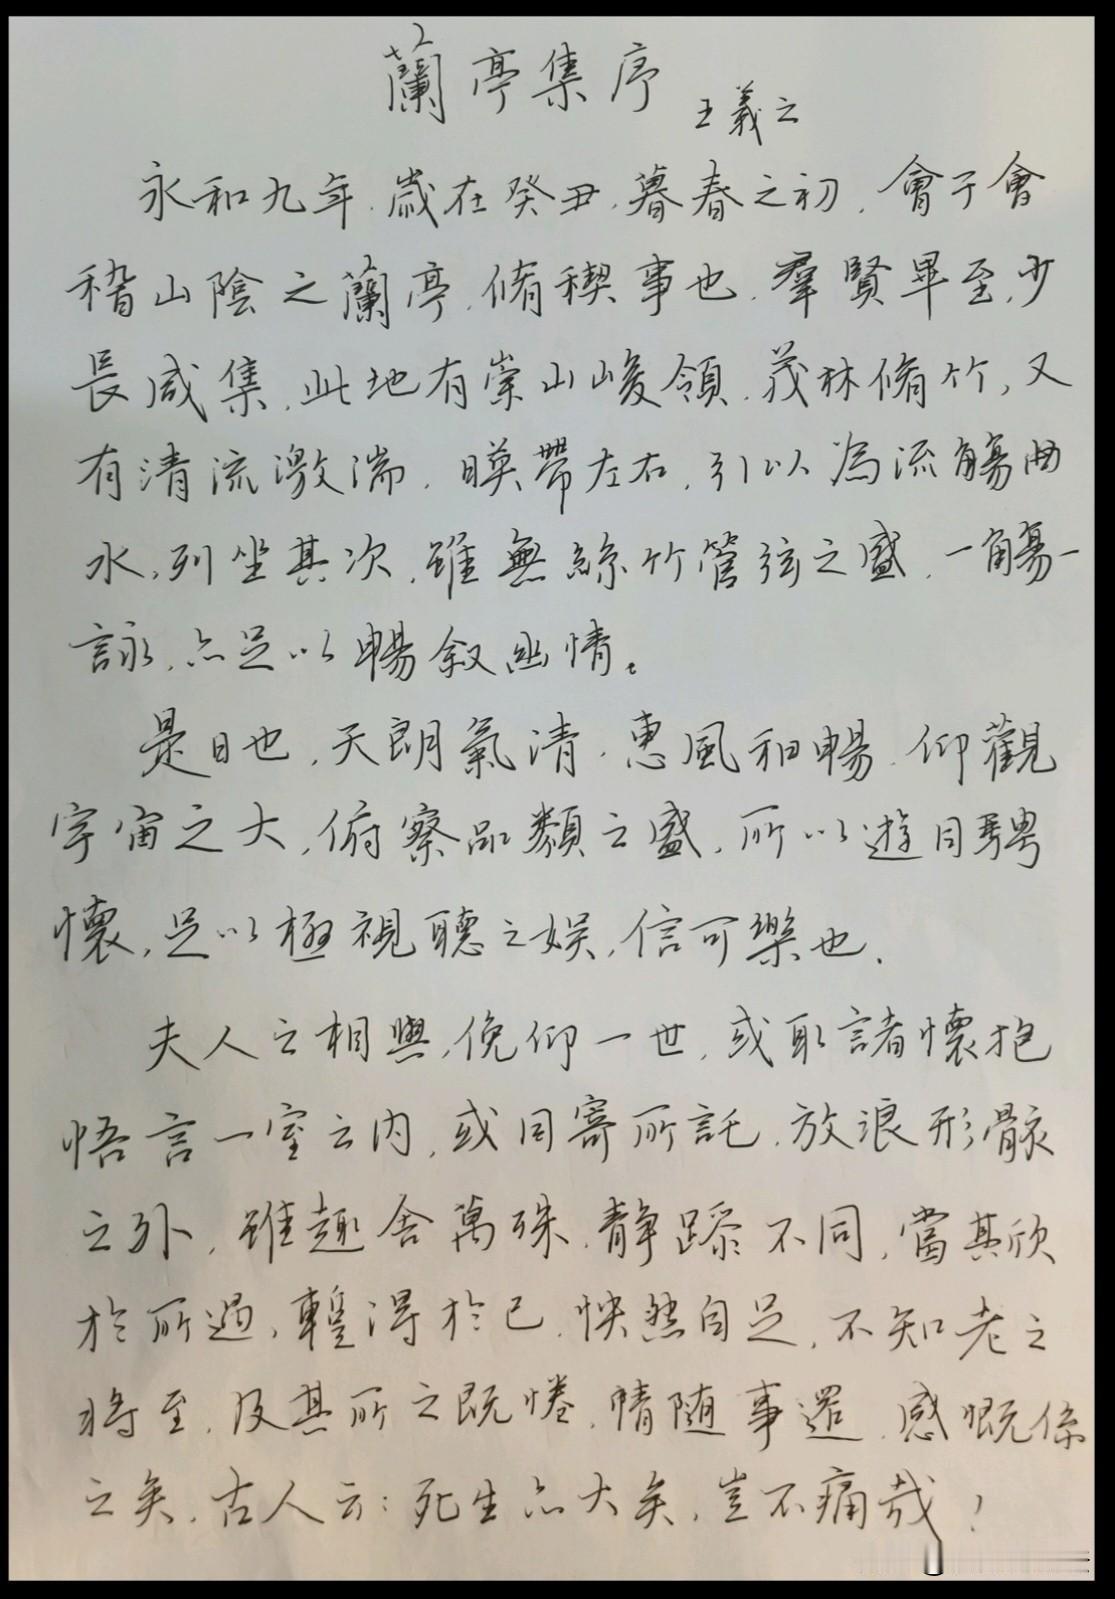 蘭亭集序
王義之
永和九年,歲在癸丑,暮春之初,會于會
稽山陰之蘭亭,脩稧事也,羣賢畢至,少
長咸集,此地有崇山峻領,茂林脩竹,又
有清流激湍,暎帶左右,引以為流觴曲
水,列坐其次,雖無絲竹管弦之盛,一觴一
詠,亦足以暢敘幽情。
是日也,天朗氣清,惠風和暢,仰觀
宇宙之大,俯察品類之盛,所以遊目騁
懷,足以極視聽之娛,信可樂也.
夫人之相與,俛仰一世,或取諸懷抱
悟言一室之內,或因寄所託,放浪形骸
之外,雖趣舍萬殊,靜躁不同,當其欣
於所遇,蹔得於己,怏然自足,不知老之
將至,及其所之既惓,情隨事遷,感慨係
之矣,古人云:死生亦大矣,豈不痛哉!